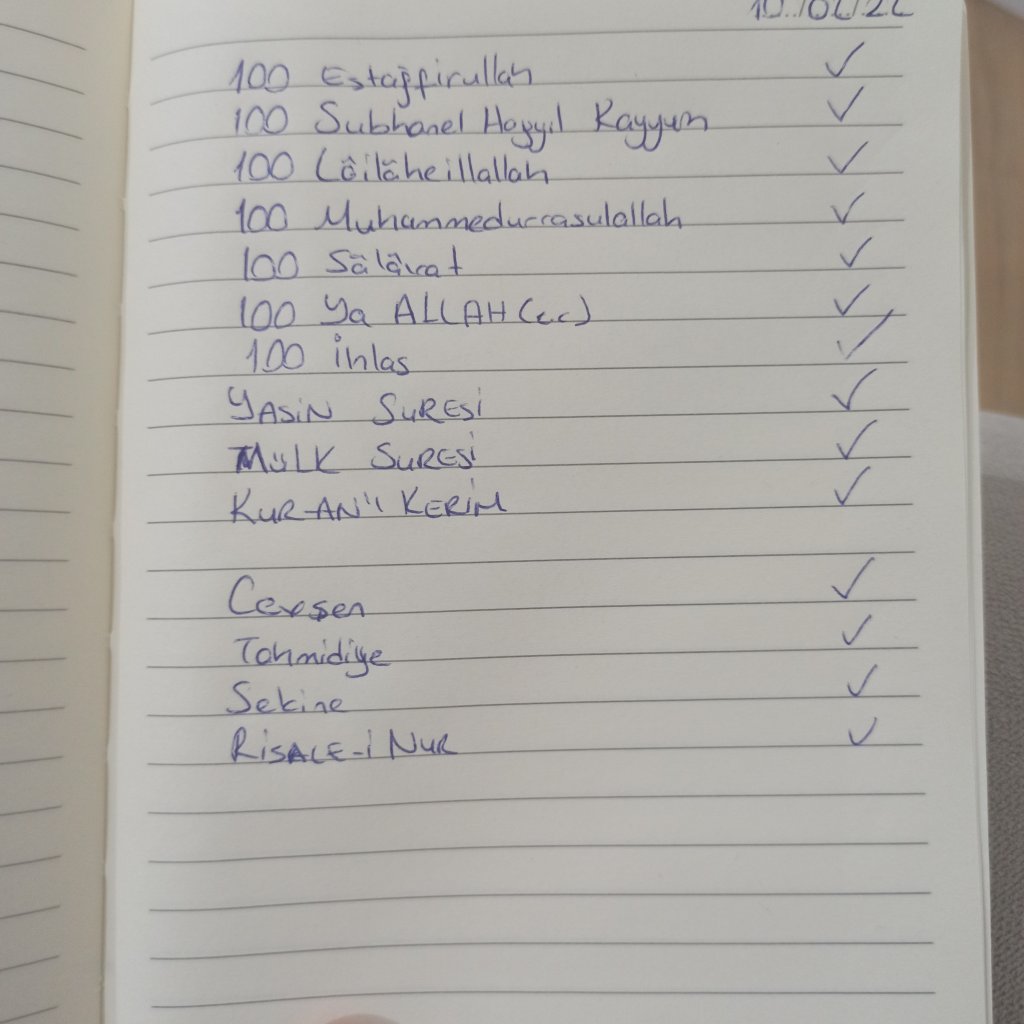 100 Estağfirullah ✓
100 Subhanel Hayyıl Kayyum ✓
100 Lâilâheillallah ✓
100 Muhammedurrasulallah ✓
100 Sâlâvat ✓
100 Ya ALLAH (c.c) ✓
100 İhlas ✓
YASİN SURESİ ✓
MÜLK SURESİ ✓
KUR-AN'I KERİM ✓
Cevşen ✓
Tahmidiye ✓
Sekine ✓
RİSALE-İ NUR ✓